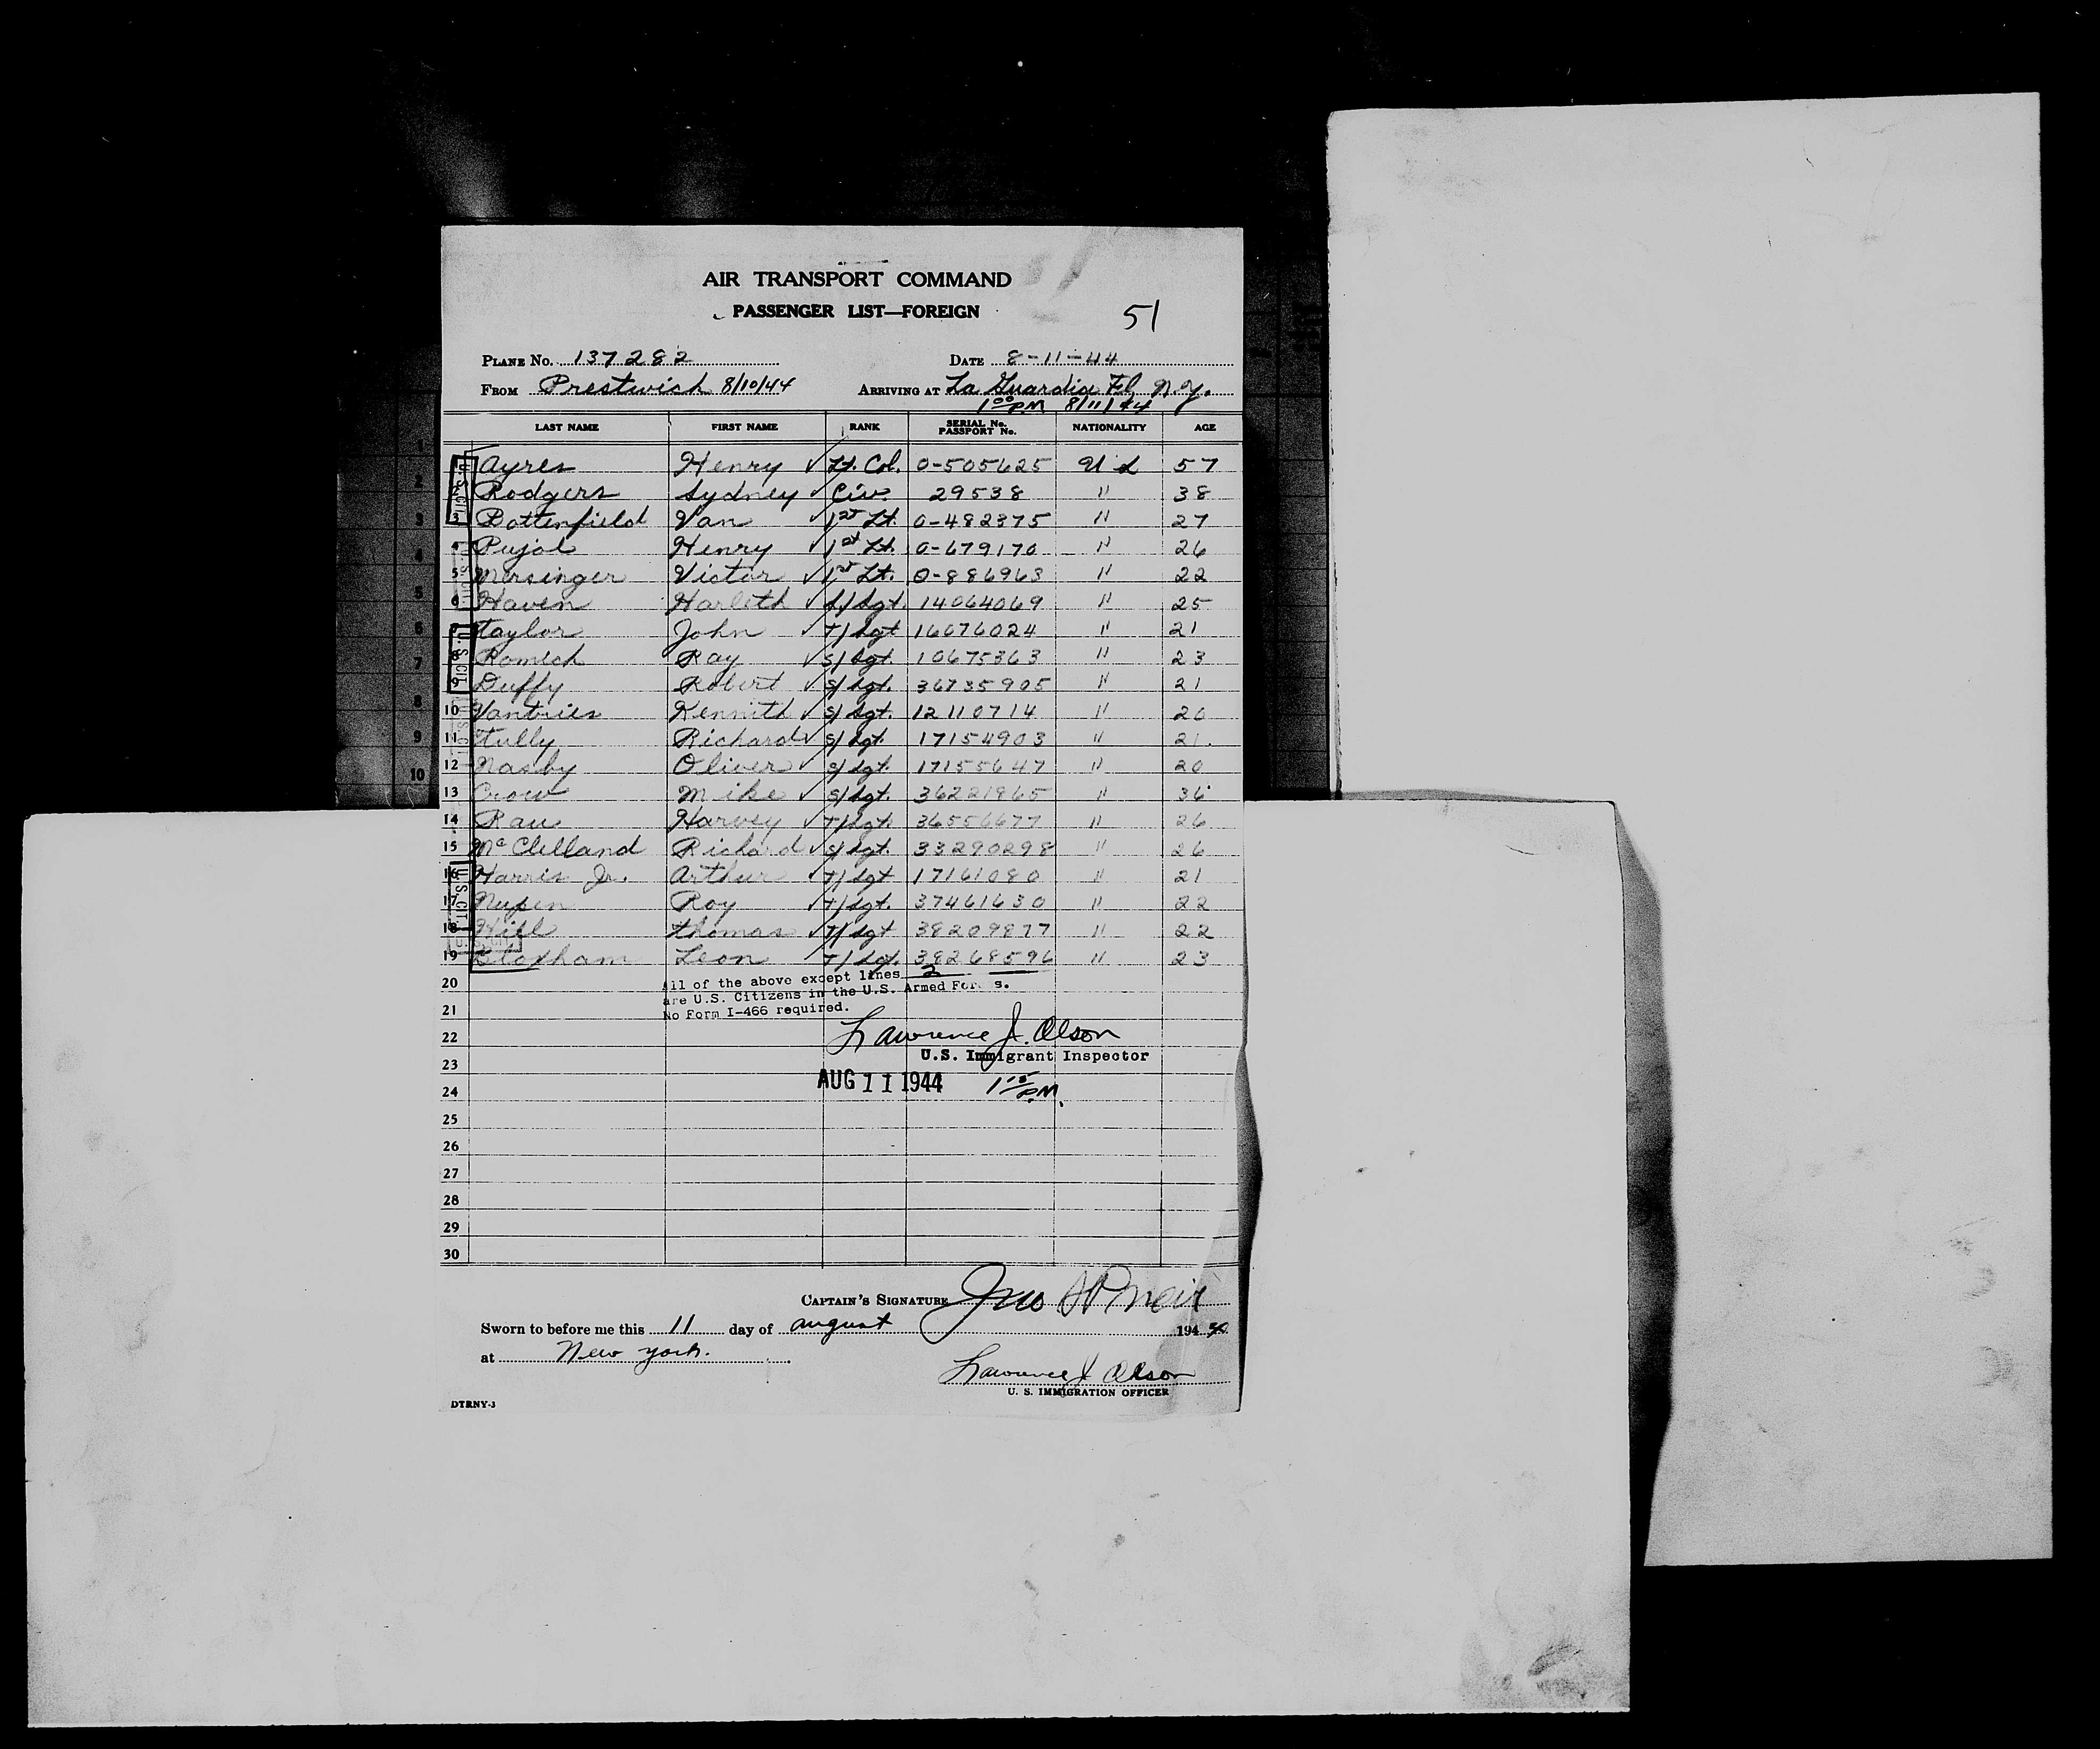 AIR TRANSPORT COMMAND
PASSENGER LIST—FOREIGN
51
PLANE No. 137282 DATE 8-11-44
FROM Prestwick 8/10/44 ARRIVING AT La Guardia Fl, N.Y.
1 00 PM 8/11/44
LAST NAME FIRST NAME RANK SERIAL No. PASSPORT No. NATIONALITY AGE
1 Ayres Henry ✓ Lt. Col. 0-505625 U S 57
2 Rodgers Sydney ✓ Civ. 29538 " 38
3 Bottenfield Van ✓ 1st Lt. 0-482375 " 27
4 Pujol Henry ✓ 1st Lt. 0-679170 " 26
5 Mersinger Victor ✓ 1st Lt. 0-886963 " 22
6 Haven Harleth ✓ S/Sgt. 14064069 " 25
7 Taylor John ✓ T/Sgt 16076024 " 21
8 Romich Ray ✓ S/Sgt. 10675363 " 23
9 Duffy Robert ✓ S/Sgt. 36735905 " 21
10 Vantries Kennith ✓ S/Sgt. 12110714 " 20
11 Tully Richard ✓ S/Sgt. 17154903 " 21.
12 Nasby Oliver ✓ S/Sgt. 17155647 " 20
13 Crow Mike ✓ S/Sgt. 36221965 " 36
14 Rau Harvey ✓ T/Sgt. 36556677 " 26
15 McClelland Richard ✓ S/Sgt. 33290298 " 26
16 Harris Jr. Arthur ✓ T/Sgt 17161080 " 21
17 Nupen Roy ✓ T/Sgt. 37461630 " 22
18 Hill Thomas ✓ T/Sgt 38209877 " 22
19 Bloxham Leon T/Sgt. 38268596 " 23
20 All of the above except lines 2
are U.S. Citizens in the U.S. Armed For s.
21 No Form I-466 required.
22 Lawrence J. Olson
23 U.S. Immigrant Inspector
24 AUG 11 1944 1 15 P.M.
25
26
27
28
29
30
CAPTAIN'S SIGNATURE
Sworn to before me this 11 day of August 194
at New York.
Lawrence J Olson
U. S. IMMIGRATION OFFICER
DTRNY-3
1
2
3
4
5
6
7
8
9
10
U.S. CIT.
U.S. CIT.
U.S. CIT.